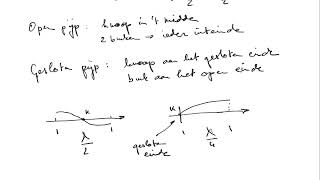 2
Open pijp : knoop in 't midden
2 buiken → ieder uiteinde
Gesloten pijp : knoop aan het gesloten einde
buik aan het open einde
K K
1 1 1
λ/2 λ/4
gesloten
einde